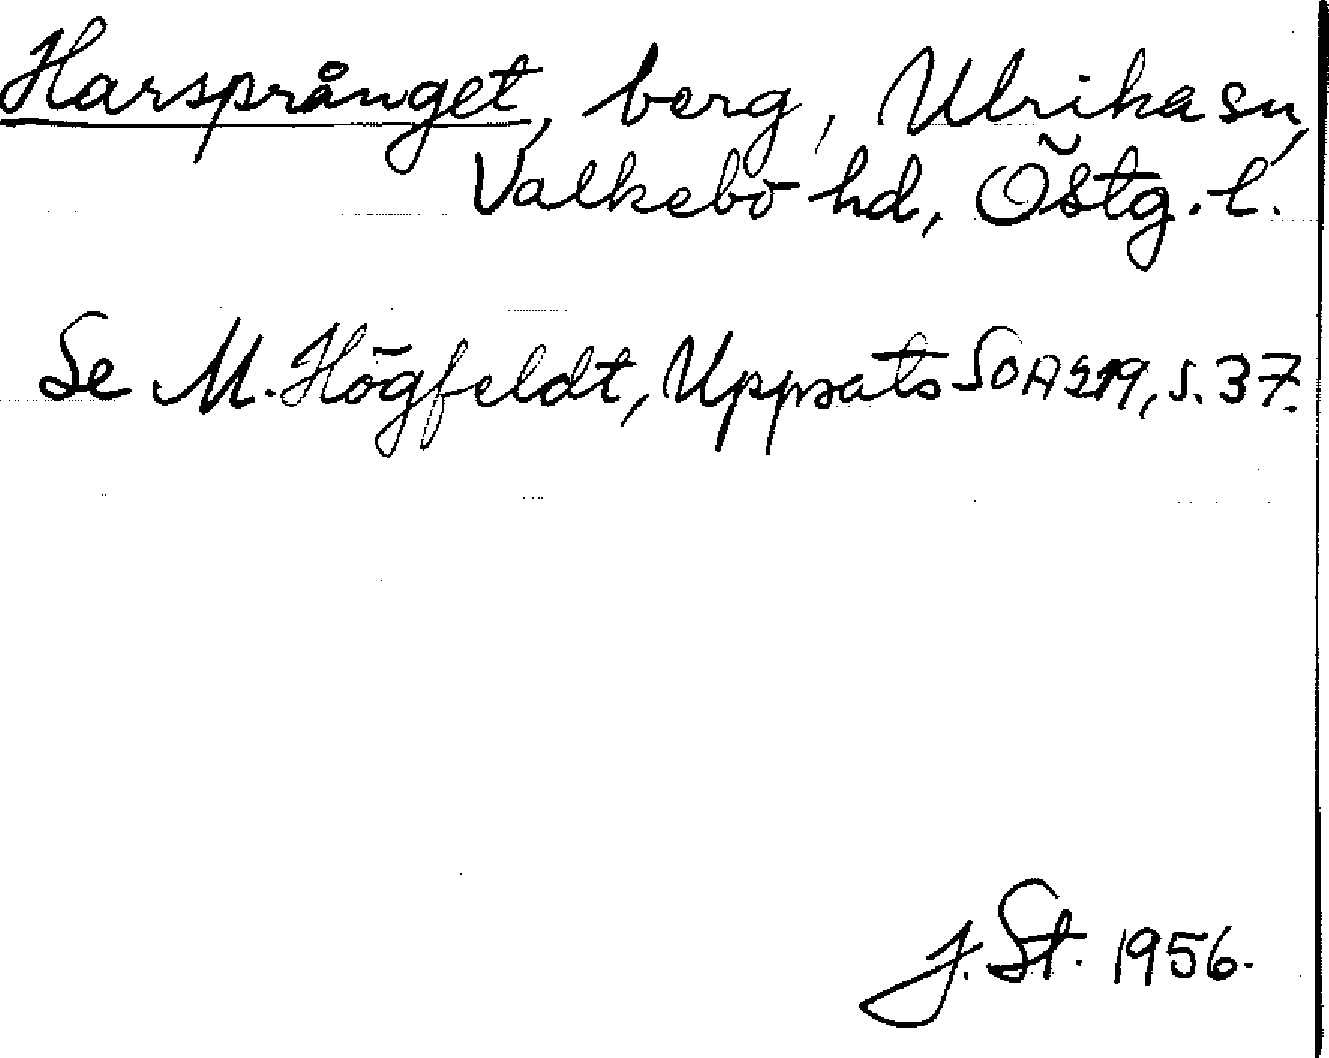 Harsprånget, berg, Ulrika sn,
Valkebo hd, Östg. l.
Se M. Högfeldt, Uppsats SOA 219, s. 37.
J. St. 1956.